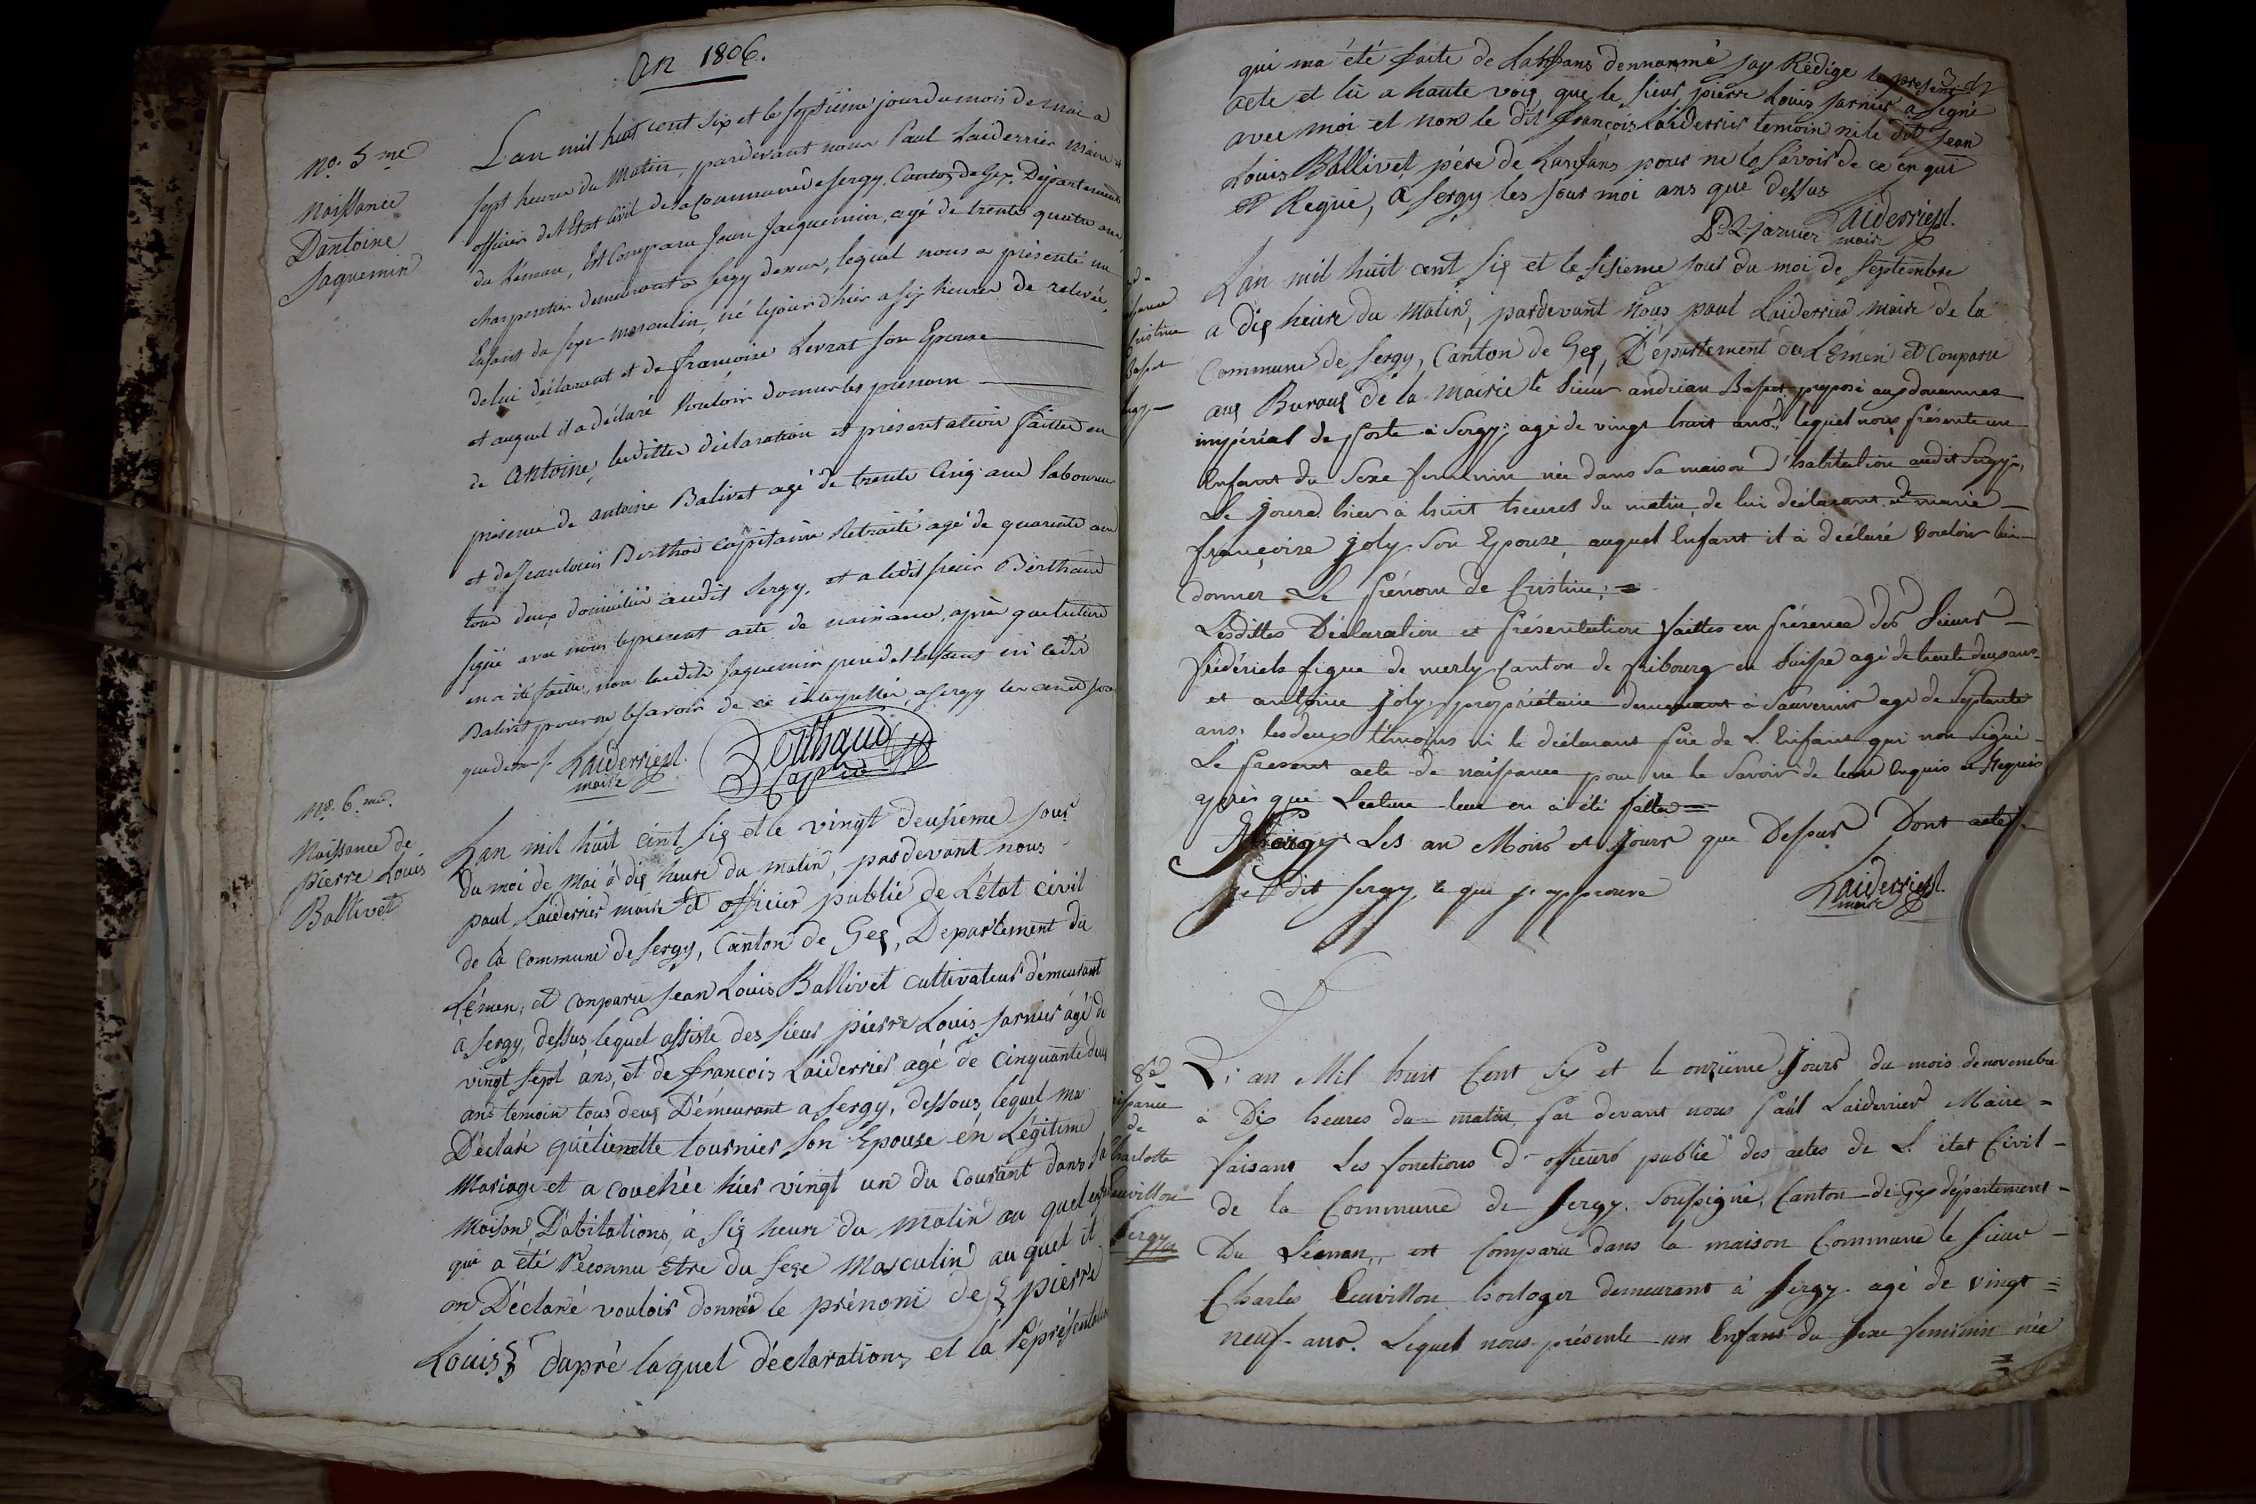 An 1806.
No. 5me
Naissance
Dantoine
Jaquemin
L'an mil huit cent six et le septieme jour du mois de mai a
sept heures du Matin, pardevant nous Paul Laiderrier maire et
officier de l'Etat Civil de la Commune de Sergy, Canton de Gex, Département
du Léman, Est Comparu Jean Jacquemin, agé de trente quatre ans,
charpentier demeurant a Sergy dessus, lequel nous a présenté un
Enfant du sexe masculin, né le jour d'hier a six heures de relevée,
de lui déclarant et de françoise Levrat son Epouse
et auquel il a déclaré Vouloir donner les prenom
de Antoine, lesdittes déclaration et présentation faittes en
présence de antoine Balivet agé de trente Cinq ans laboureur
et de Jean louis Berthod Capitaine Retraité agé de quarente ans
tous deux domiciliés audit Sergy, et a ledit sieur Berthaud
signé avec nous le present acte de naissance, après que lecture
en a été faitte, non ledit Jaquemin pere de l'enfant ni ledit
Balivet pour ne le savoir de ce interpellés, a Sergy les an et jour
que dessus /. Laiderrier.
maire
Berthaud
Capne
No. 6.me.
Naissance de
pierre Louis
Ballivet
Lan mil huit cent six et le vingt deusieme jour
du moi de Mai à dix heure du matin, pardevant nous
paul Laiderrier maire et officier public de Létat civil
de la Commune de Sergy, Canton de Gex, Departement du
Lémen, et conparu Jean Louis Ballivet cultivateur démeurant
a Sergy, dessus lequel assiste des sieur pierre Louis Jarnier agé de
vingt sept ans, et de françois Laiderrier agé de cinquante deux
ans temoin tous deux Démeurant a Sergy, dessous, lequel ma
Déclaré quétienette tournier son Epouse én Légitime
Mariage et a couchée hier vingt un du courant dans sa
Maison, Dabitations, a six heure du matin au quel enfant
qui a été réconnu etre du sexe Masculin au quel il
on Déclaré vouloir donnér le prénoni de pierre
Louis dapré laquel déclarations et la réprésentation
qui ma été faite de Lanfans dennommé jay Rédige le present
acte et lü a haute voix que le sieur pierre Louis Jarnier a signé
avec moi et non le dit françois Laiderrier temoin ni le dit Jean
Louis Ballivet pére de Lanfans pour ne le savoir de ce en qui
et Requie, a Sergy les jour moi ans que dessus
P. L. Jarnier Laiderrier.
maire
Lan mil huit cent six et le sisieme jour du moi de Septembre
a dix heure du Matin, pardevant Nous paul Laiderrier maire de la
Commune de Sergy, Canton de Gex, Département du Lémen et Conparu
aux Buraux de la Mairie le sieur andrian Basset preposé aux douannes
impérial de poste a Sergy; agé de vingt huit ans, lequel nous présente un
Enfant du Sexe feminin née dans sa maison d'habitation audit Sergy,
Le jourd hier à huit heures du matin, de lui déclarant et marie
françoise Joly son Epouse, auquel Enfant il à déclaré vouloir lui
donner Le Prénom de Cristine; =
Lesdittes Déclaration et Présentation faittes en présence des Sieurs
frédérick figue de merly Canton de fribourg en Suisse agé de trente deux ans
et antoine Joly, propriétaire demeurant à Sauvernier agé de Septante
ans, les deux témoins ni le déclarant père de L'Enfant qui non Signé
Le présent acte de naissance pour ne le Savoir de leurs Enquis et Requis
après que Lecture leur en à été faitte =
Les an Mois et Jours que Dessus Dont acte
dit Sergy, ce que je approuve
Laiderrier.
maire
8e
de
Charlotte
Cuvillon
Sergy
L'an Mil huit Cent Six et le onzieme Jours du mois de novembre
à Dix heures du matin, par devant nous paul Laiderrier Maire =
faisant les fonctions d'officiers public des actes de L'etat Civil
de la Commune de Sergy, Soussigné, Canton de Gex département
Du Léman, est Comparu dans la maison Commune le sieur
Charles Cuvillon horloger demeurant à Sergy agé de vingt =
neuf ans. Lequel nous présente un Enfant du sexe feminin née